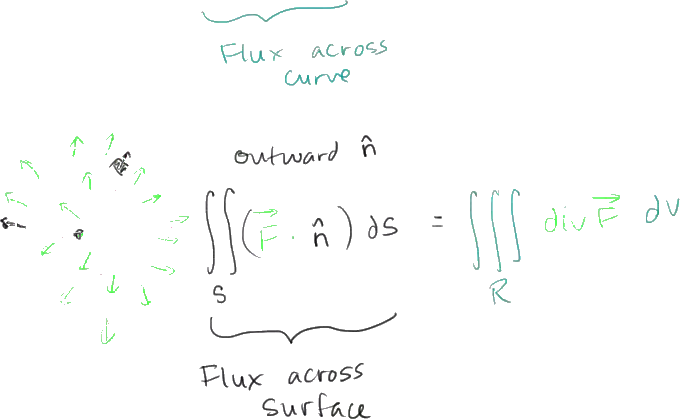 Flux across
curve
outward n̂
∬ ( F⃗ · n̂ ) ds = ∭ div F⃗ dv
S R
Flux across
surface